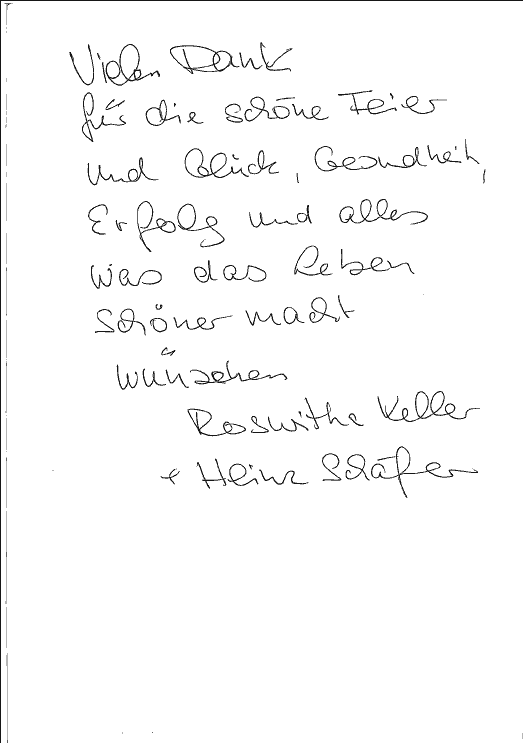 Vielen Dank
für die schöne Feier
und Glück, Gesundheit,
Erfolg und alles
was das Leben
schöner macht
wünschen
Roswitha Keller
+ Heinz Schäfer